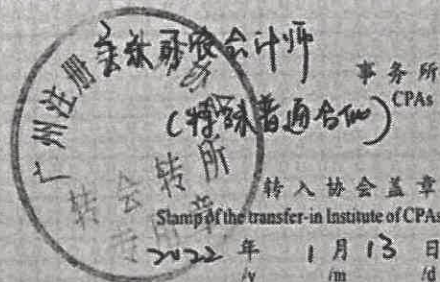 会计师
事务所
CPAs
(特殊普通合伙)
广州注册
转会转所
专用章
转入协会盖章
Stamp of the transfer-in Institute of CPAs
2022 年 1 月 13 日
/y /m /d